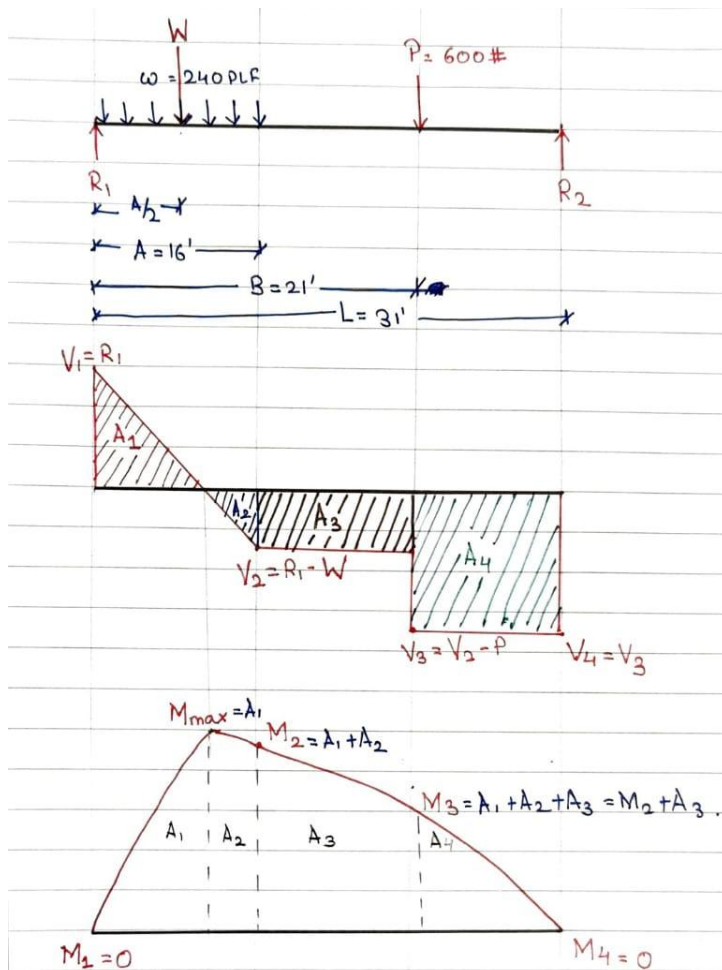 W
P = 600#
ω = 240 PLF
R₁
R₂
A/2
A = 16'
B = 21'
L = 31'
V₁ = R₁
A₁
A₂
A₃
A₄
V₂ = R₁ - W
V₃ = V₂ - P
V₄ = V₃
Mmax = A₁
M₂ = A₁ + A₂
M₃ = A₁ + A₂ + A₃ = M₂ + A₃.
A₁
A₂
A₃
A₄
M₁ = 0
M₄ = 0